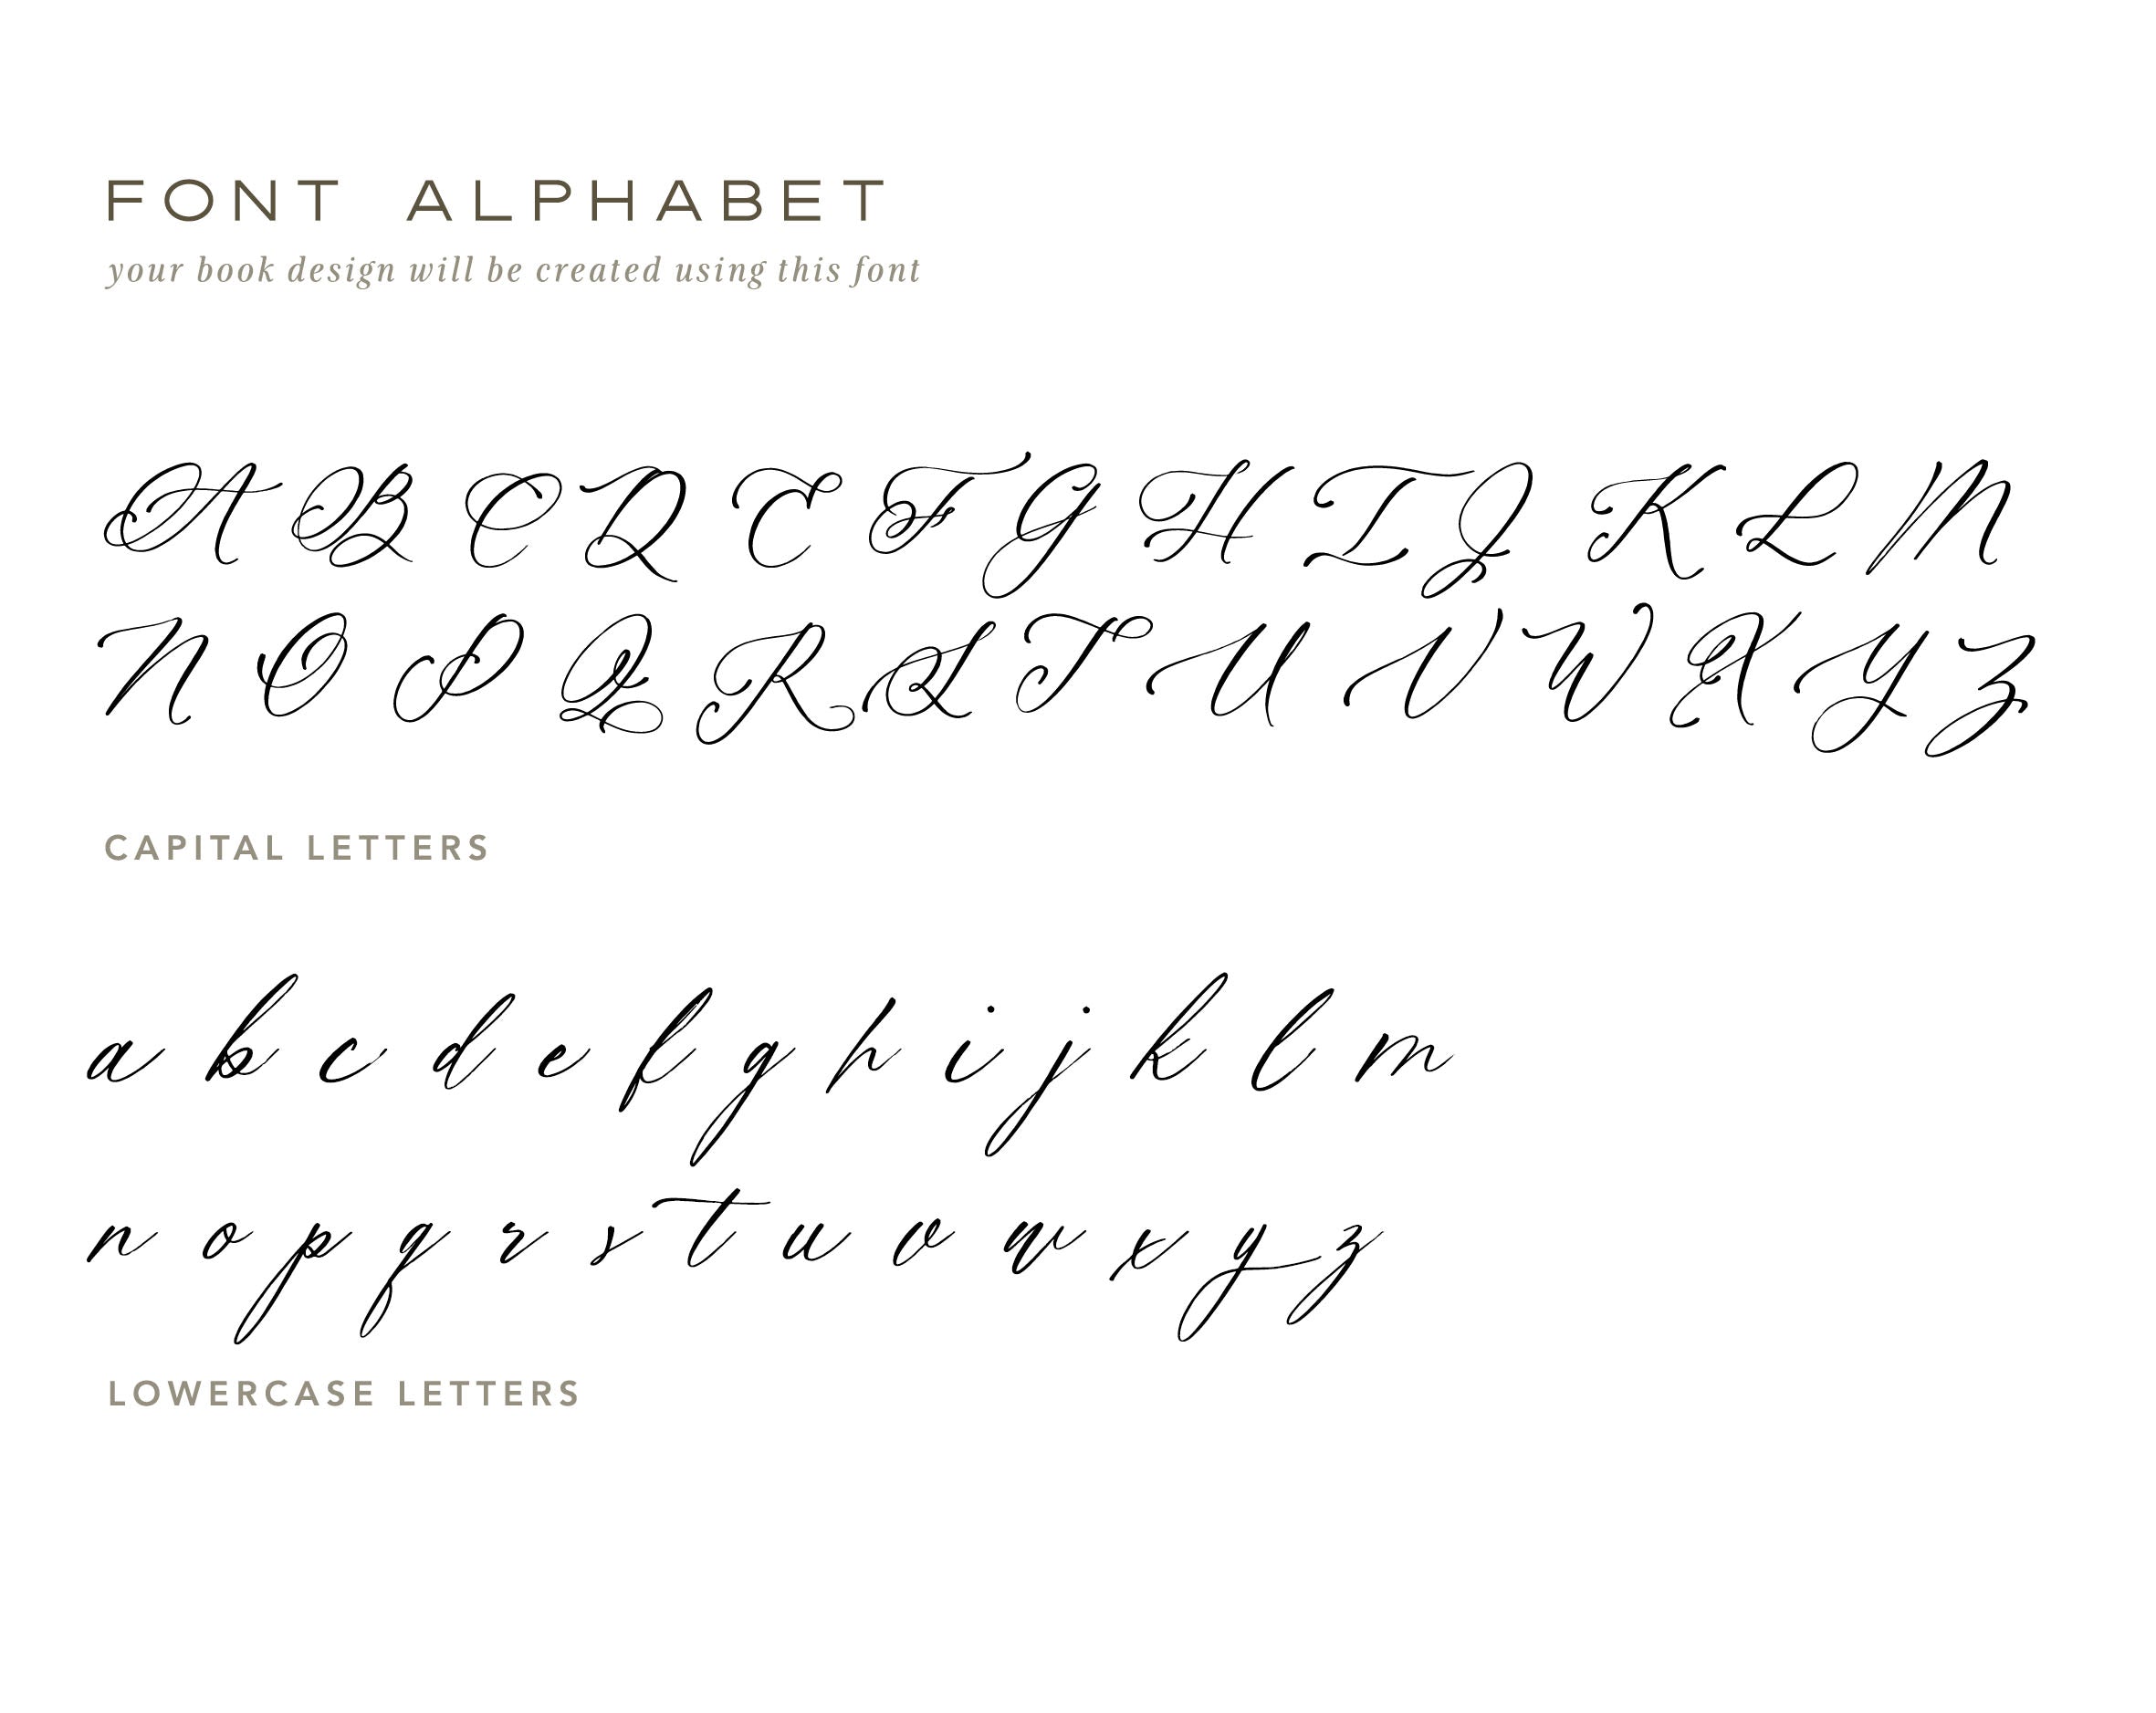 FONT ALPHABET
your book design will be created using this font
A B C D E F G H I J K L M
N O P Q R S T U V W X Y Z
CAPITAL LETTERS
a b c d e f g h i j k l m
n o p q r s t u v w x y z
LOWERCASE LETTERS